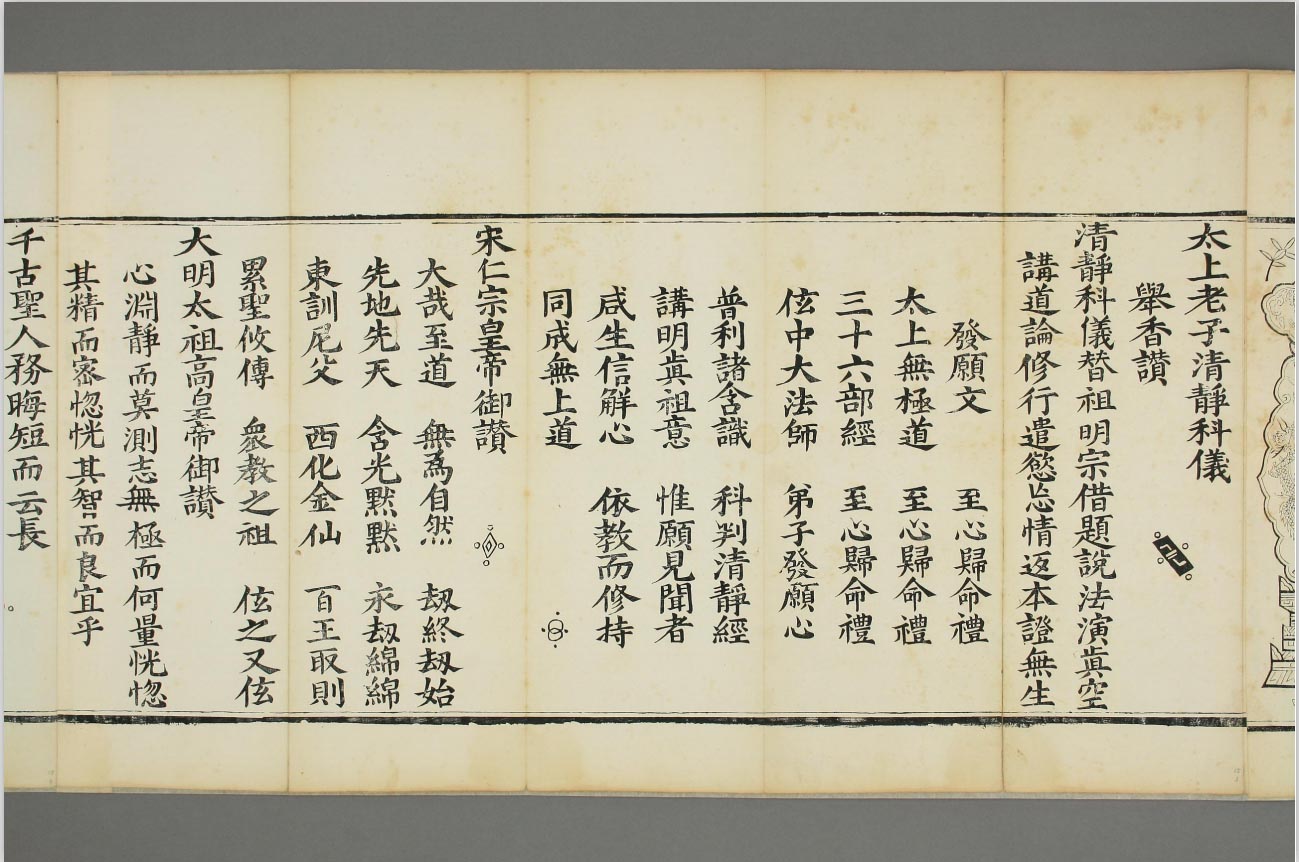 太上老子清靜科儀
舉香讃
清靜科儀替祖明宗借題說法演眞空
講道論修行遣慾忘情返本證無生
發願文　至心歸命禮
太上無極道　至心歸命禮
三十六部經　至心歸命禮
伭中大法師　弟子發願心
普利諸含識　科判清靜經
講明眞祖意　惟願見聞者
咸生信解心　依教而修持
同成無上道
宋仁宗皇帝御讃
大哉至道　無爲自然　刼終刼始
先地先天　含光默默　永刼綿綿
東訓尼父　西化金仙　百王取則
累聖攸傳　衆教之祖　伭之又伭
大明太祖高皇帝御讃
心淵靜而莫測志無極而何量恍惚
其精而密惚恍其智而良宜乎
千古聖人務晦短而云長